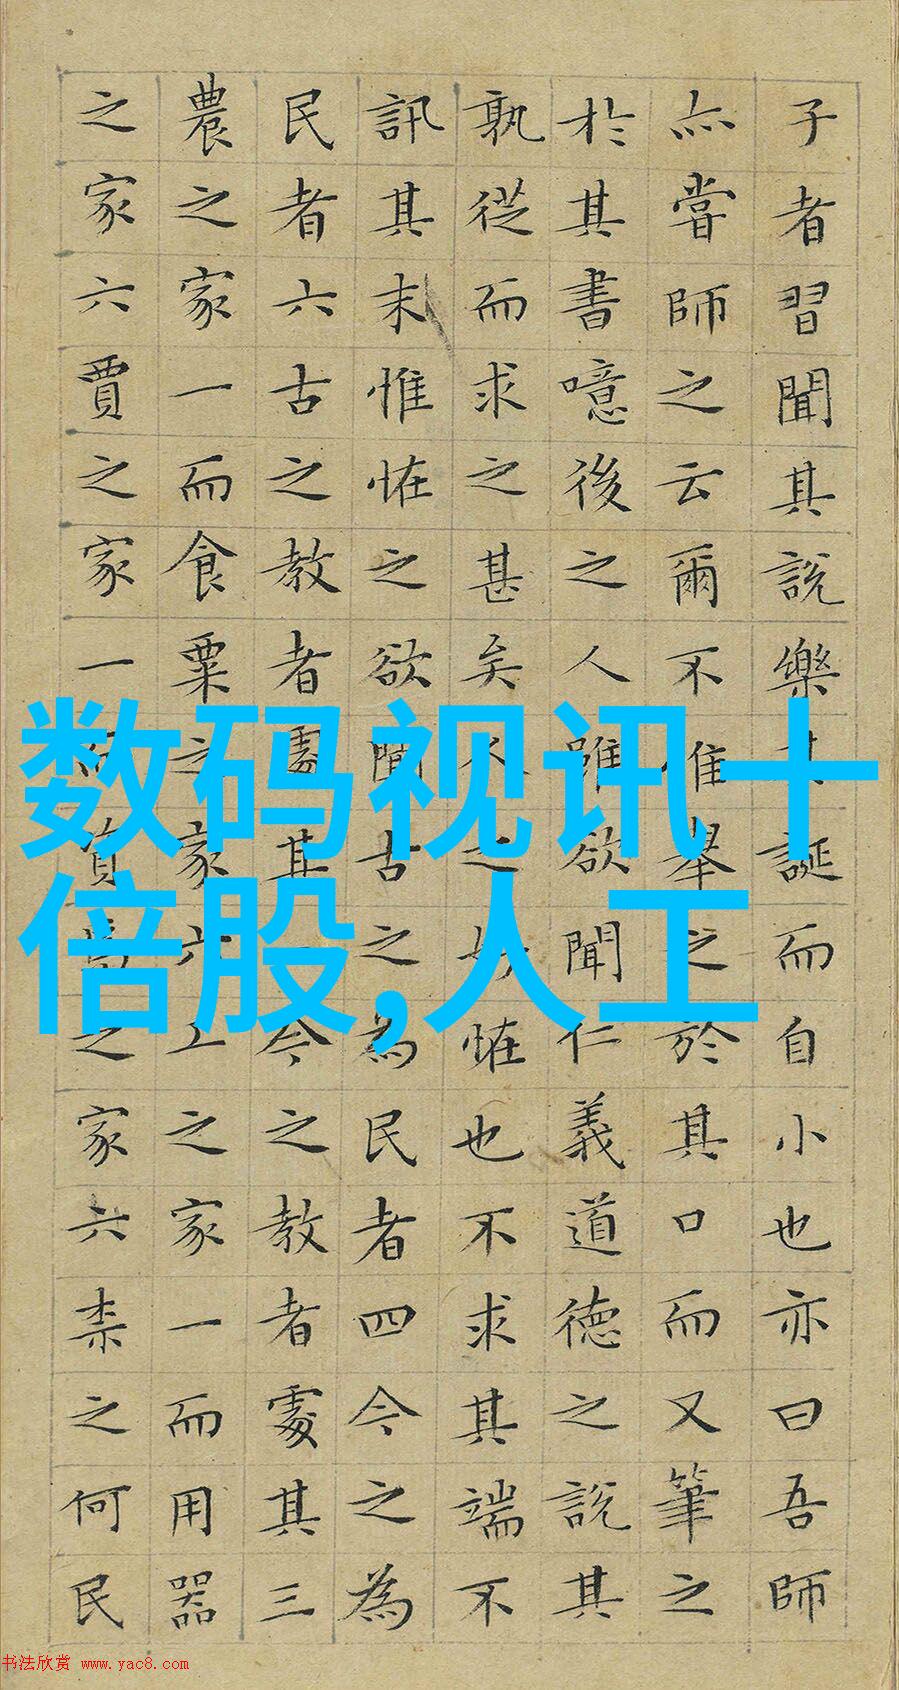 子者習聞其說樂其誕而自小也亦曰吾師
亦嘗師之云爾不惟舉之於其口而又筆之
於其書噫後之人雖欲聞仁義道德之說其
孰從而求之甚矣人之好恠也不求其端不
訊其末惟恠之欲聞古之為民者四今之為
民者六古之教者處其一今之教者處其三
農之家一而食粟之家六工之家一而用器
之家六賈之家一而資焉之家六柰之何民
数码视讯十
倍股,人工
书法欣赏 www.yac8.com